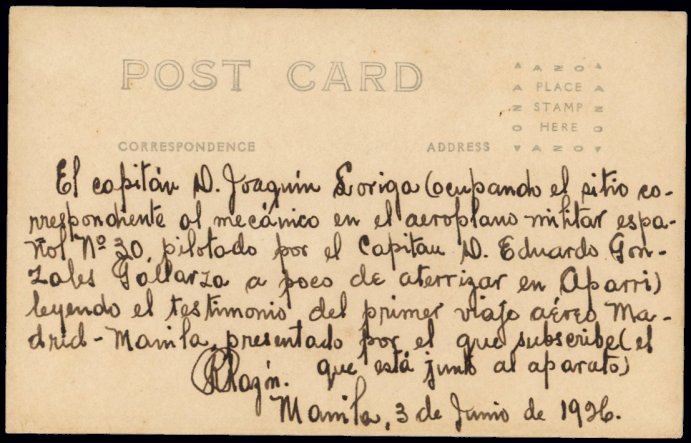 POST CARD
AZOA
PLACE
STAMP
HERE
AZOA
CORRESPONDENCE
ADDRESS
El capitán D. Joaquín Loriga (ocupando el sitio co-
rrespondiente al mecánico en el aeroplano militar espa-
ñol Nº 30, pilotado por el Capitan D. Eduardo Gon-
zales Gallarza a poco de aterrizar en Aparri)
leyendo el testimonio del primer viaje aéreo Ma-
drid-Manila, presentado por el que subscribe (el
que está junto al aparato)
Manila, 3 de Junio de 1926.